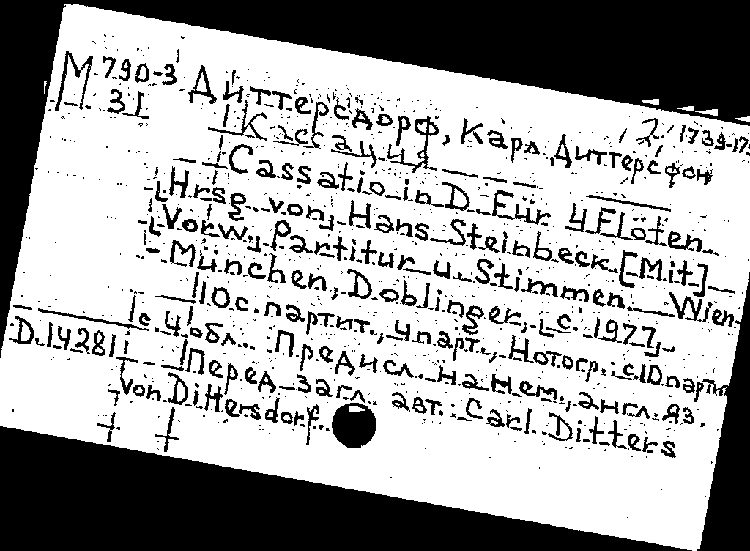 М 790-3
31
Диттерсдорф, Карл Диттерсфон
2/ 1739-179
Кассация
Cassatio in D. Für 4 Flöten.
[Hrsg. von] Hans Steinbeck. [Mit]
[Vorw.] Partitur u. Stimmen. Wien-
- München, Doblinger, [с. 1977].
10 с. партит., 4 парт., Нотогр. с 10 партит
с. 4 обл. Предисл. на нем., англ. яз.
D.14281i Перед загл. авт.: Carl Ditters
von Dittersdorf.